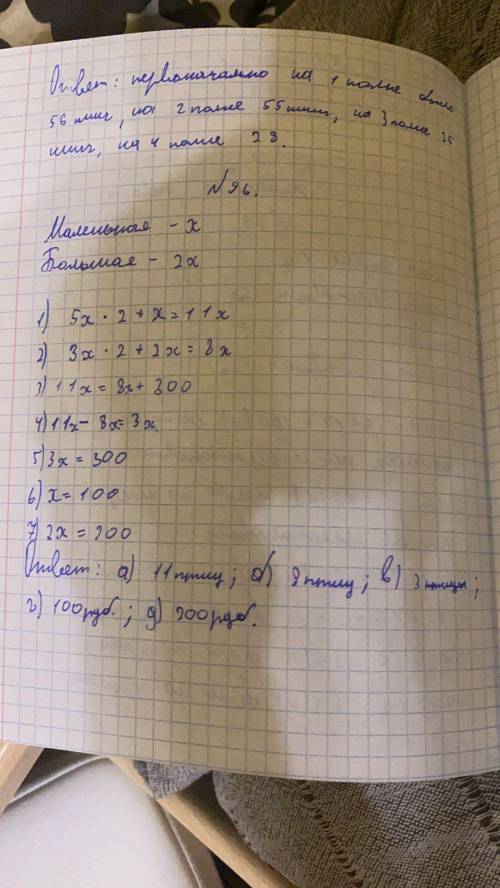 Ответ: первоначально на 1 полке было
56 книг, на 2 полке 55 книг, на 3 полке 35
книг, на 4 полке 28.
№96.
Маленькая - x
Большая - 2x
1) 5x · 2 + x = 11x
2) 3x · 2 + 2x = 8x
3) 11x = 8x + 300
4) 11x - 8x = 3x.
5) 3x = 300
6) x = 100
7) 2x = 200
Ответ: а) 11 птиц; б) 8 птиц; в) 3 птицы;
г) 100 руб.; д) 200 руб.